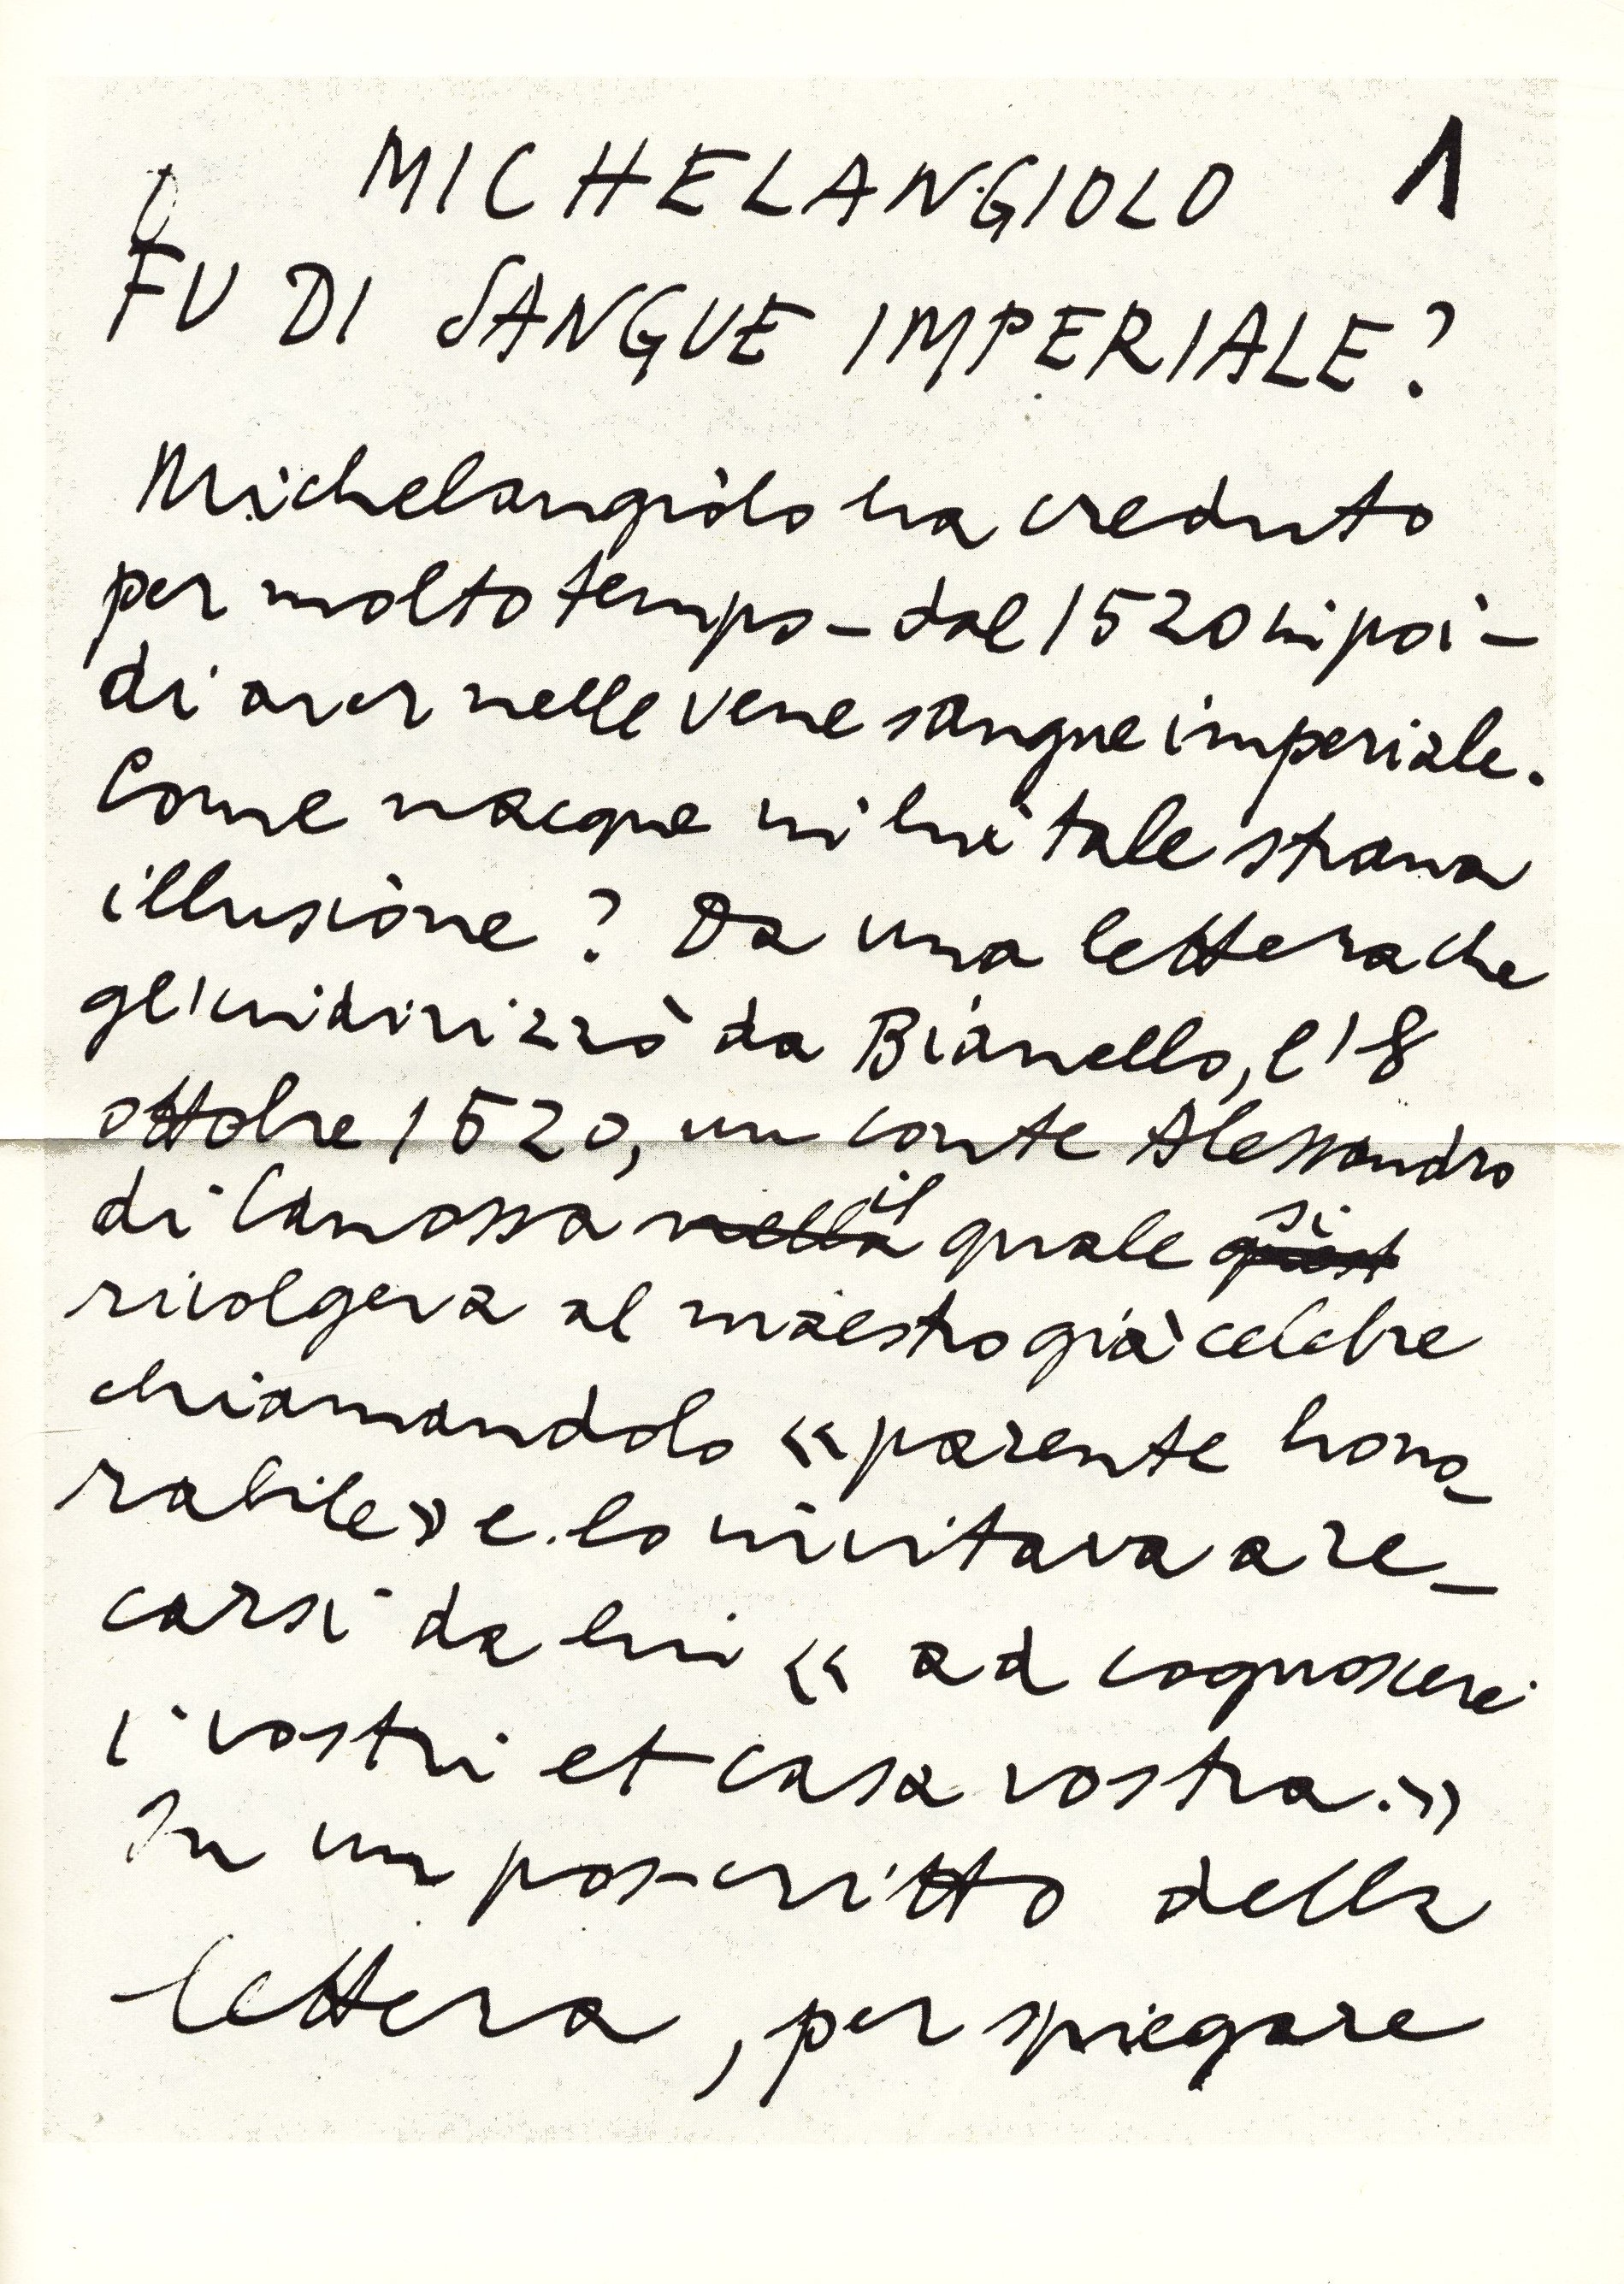 MICHELANGIOLO 1
FU DI SANGUE IMPERIALE?
Michelangiolo ha creduto
per molto tempo – dal 1520 in poi –
di aver nelle vene sangue imperiale.
Come nacque in lui tale strana
illusione? Da una lettera che
gl'indirizzò da Bianello, l'8
ottobre 1520, un conte Alessandro
di Canossa nella il quale quest si
rivolgeva al maestro già celebre
chiamandolo «parente hono-
rabile» e lo invitava a re-
carsi da lui «ad cognoscere
i vostri et casa vostra.»
In un poscritto della
lettera, per spiegare